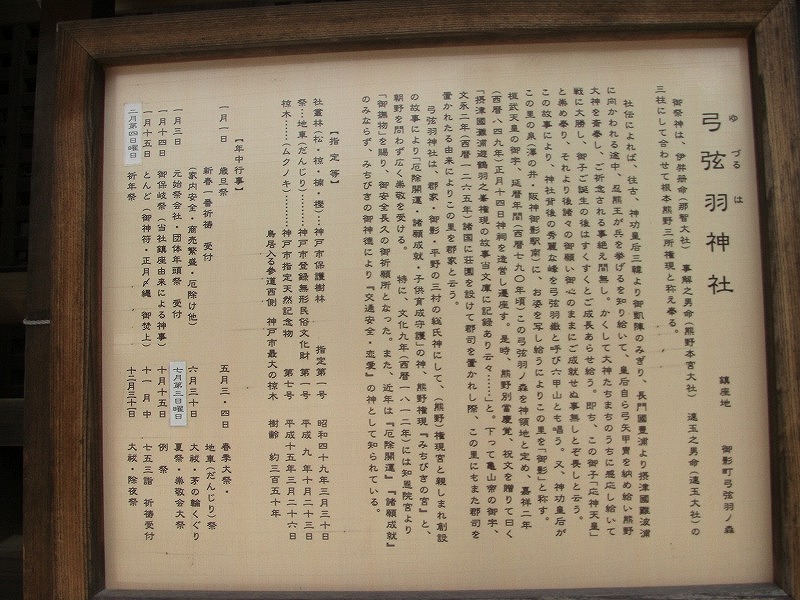 弓弦羽神社
ゆづるは
鎮座地 御影町弓弦羽ノ森
御祭神は、伊弉册命(那智大社) 事解之男命(熊野本宮大社) 速玉之男命(速玉大社)の
三柱にして合わせて根本熊野三所権現と称え奉る。
社伝によれば、往古、神功皇后三韓より御凱陣のみぎり、長門國豊浦より摂津國難波浦
に向かわれる途中、忍熊王が兵を挙げるを知り給いて、皇后自ら弓矢甲冑を納め給い熊野
大神を斎奉し、ご祈念される事絶え間無し。かくして大神たちまちのうちに感応し給いて
戦に大勝し、御子ご誕生の後はすくすくとご成長あらせ給う。即ち、この御子「応神天皇」
と崇め奉り、それより後諸々の御願い御心のままにご成就せぬ事無しとぞ畏しと云う。
この故事により、神社背後の秀麗な峰を弓弦羽嶽と呼び六甲山とも唱う。又、神功皇后が
この里の泉(澤の井・阪神御影駅南)に、お姿を写し給うによりこの里を「御影」と称す。
桓武天皇の御宇、延暦年間(西暦七九〇年頃)この弓弦羽ノ森を神領地と定め、嘉祥二年
(西暦八四九年)正月十四日神祠を造営し遷座す。是時、熊野別當慶覚、祝文を贈りて曰く
「摂津國難浦遊鶴羽之峯権現の故事当文庫に記録あり云々……」と。下って亀山帝の御宇、
文永二年(西暦一二六五年)諸国に荘園を設けて郡司を置かれし際、この里にもまた郡司を
置かれたる由来によりこの里を郡家と云う。
弓弦羽神社は、郡家・御影・平野の三村の総氏神にして、(熊野)権現宮と親しまれ創設
の故事により「厄除開運・諸願成就・子供育成守護」の神、熊野権現『みちびきの宮』と、
朝野を問わず広く崇敬を受ける。 特に、文化九年(西暦一八一二年)には知恩院宮より
「御撫物」を賜り、御安全長久の御祈願所となった。また、近年は『厄除開運』『諸願成就』
のみならず、みちびきの御神徳により『交通安全・恋愛』の神として知られている。
【指定等】
社叢林(松・椋・楠・樫)…神戸市保護樹林 指定第一号 昭和四十九年三月三十日
祭…地車(だんじり)………神戸市登録無形民俗文化財 第一号 平成九年十月二十三日
椋木……(ムクノキ)………神戸市指定天然記念物 第七号 平成十五年三月二十六日
鳥居入る参道西側 神戸市最大の椋木 樹齢 約三百五十年
【年中行事】
一月一日 歳旦祭
新春一番祈祷 受付
(家内安全・商売繁盛・厄除け他)
一月三日 元始祭会社・団体年頭祭 受付
一月十四日 御保岐祭(当社鎮座由来による神事)
一月十五日 とんど(御神符・正月〆縄 御焚上)
二月第四日曜日 祈年祭
五月三・四日 春季大祭・
地車(だんじり)祭
六月三十日 大祓・茅の輪くぐり
七月第三日曜日 夏祭・崇敬会大祭
十月十五日 例祭
十一月中 七五三詣 祈祷受付
十二月三十一日 大祓・除夜祭